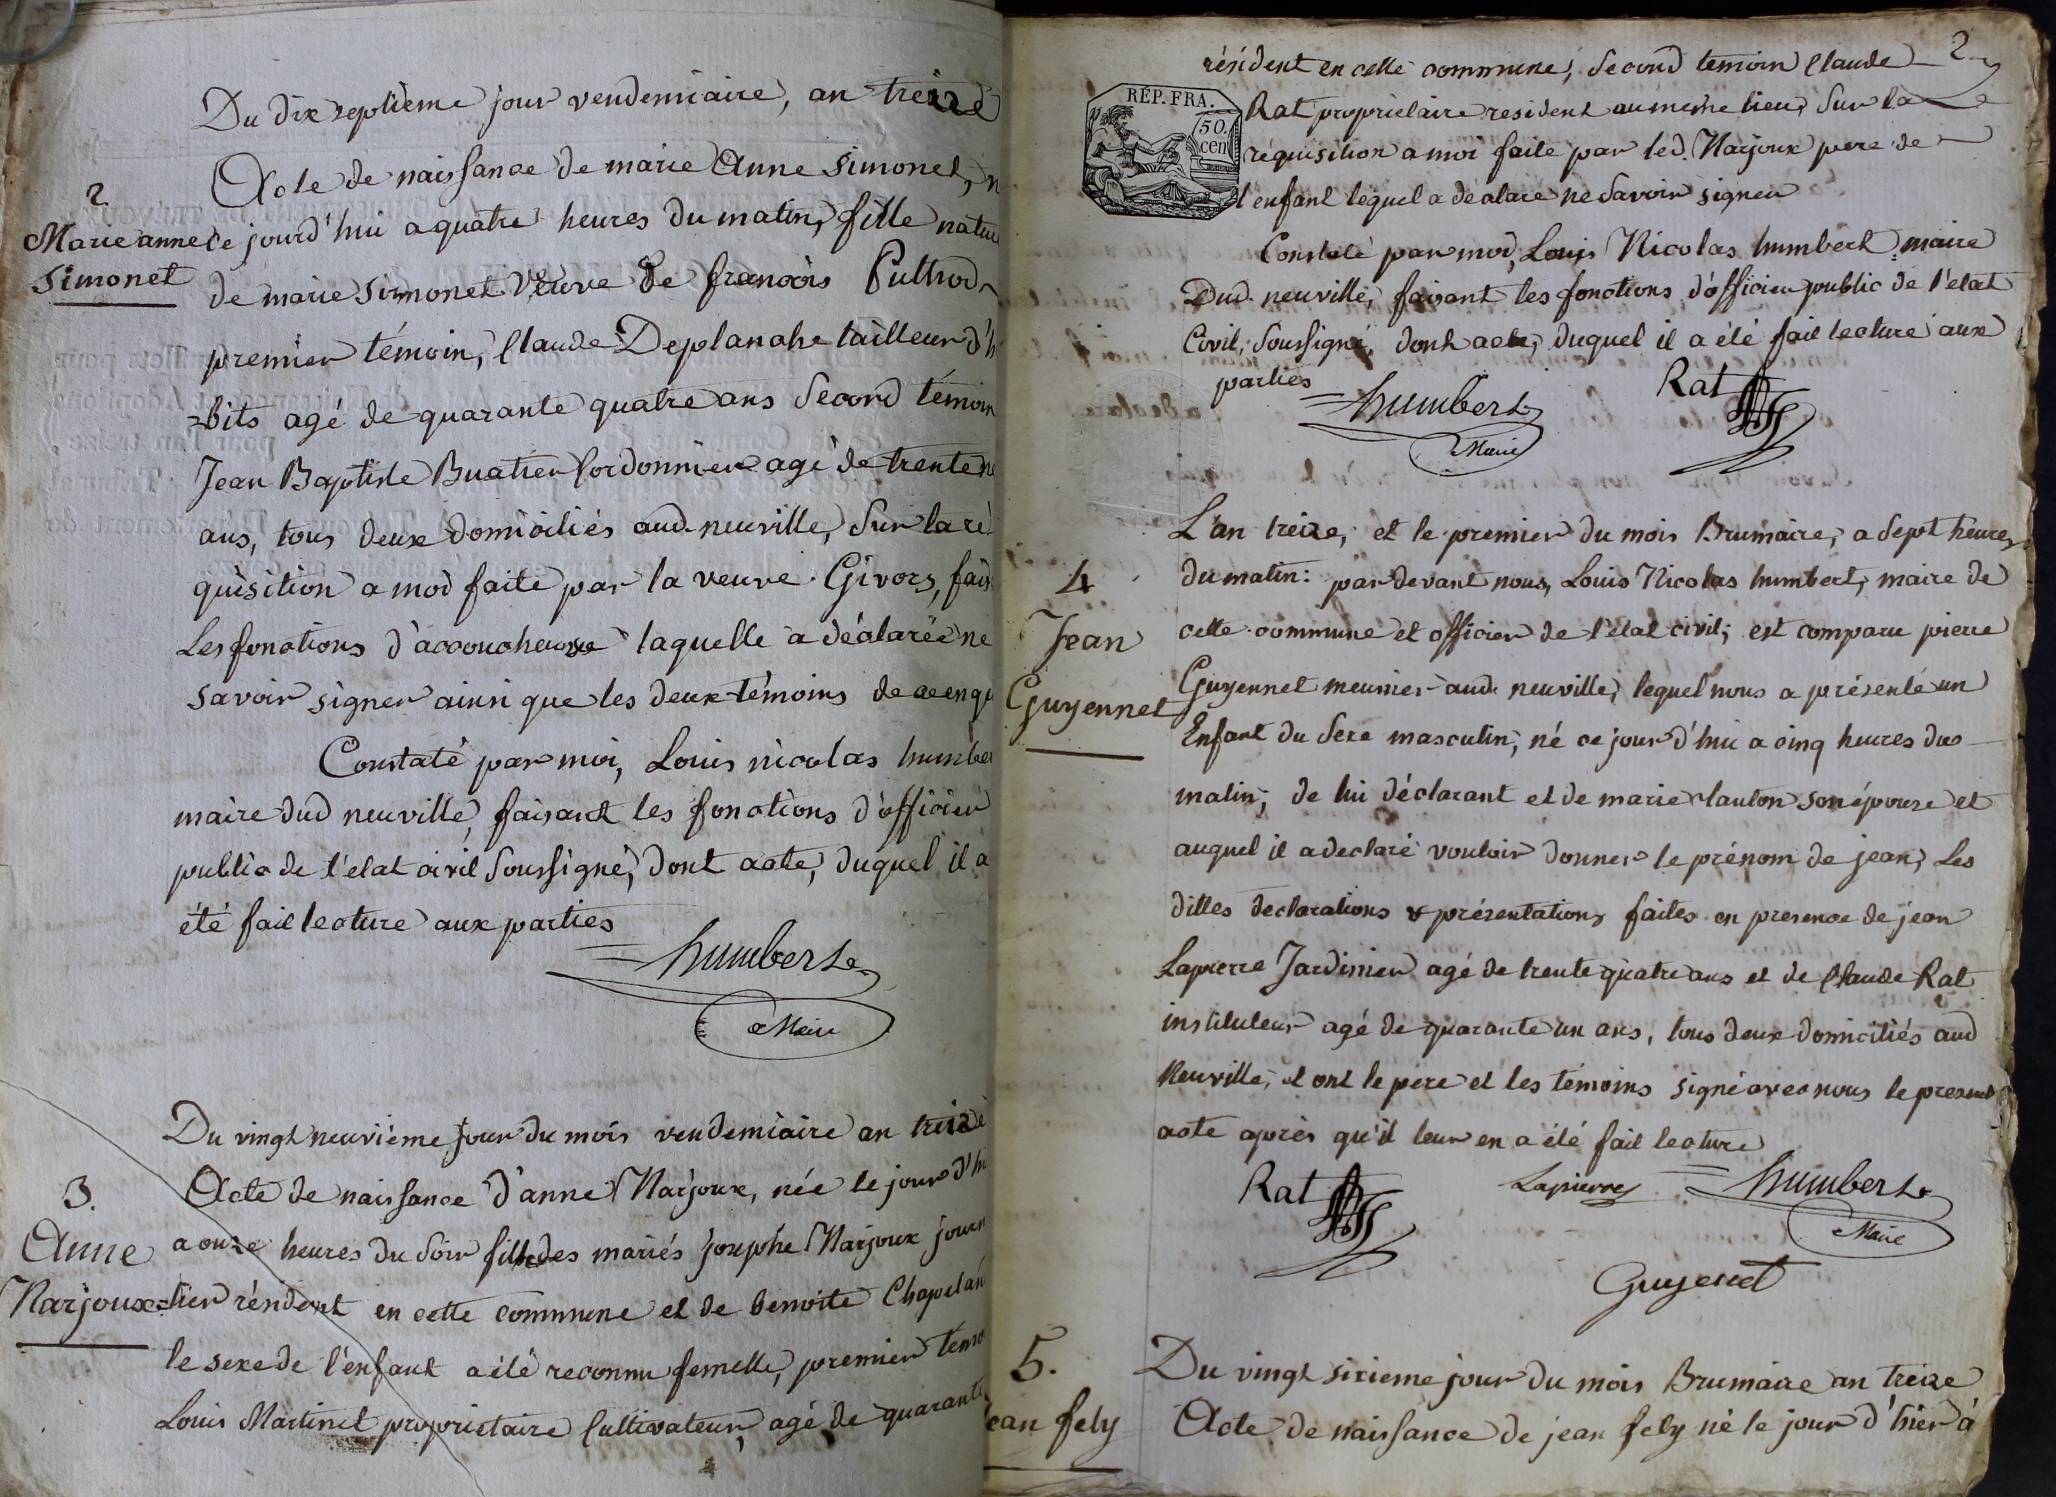 Du dix septième jour vendemiaire, an treize
Acte de naissance de marie Anne Simonet, n
2.
Marie anne
Simonet
ce jourd'hui a quatre heures du matin, fille natu
de marie Simonet veuve de francois Puthod
premier témoin, Claude Deplanche tailleur d'h
-bits agé de quarante quatre ans second témoin
Jean Baptiste Buatier Cordonnier agé de trente
ans, tous deux domiciliés aud. neuville, Sur la ré
quisition a moi faite par la veuve Givors, fais
Les fonctions d'accoucheuse laquelle a déclarée ne
savoir signer ainsi que les deux témoins de ce enqu
Constaté par moi, Louis nicolas humber
maire dud neuville, faisant les fonctions d'officier
public de l'etat civil soussigné, dont acte, duquel il a
été fait lecture aux parties
humbert
Maire
Du vingt neuvième jour du mois vendemiaire an treize
3.
Anne
Narjoux
Acte de naissance d'anne Narjoux, née le jour d'hi
a onze heures du soir fille des mariés josephe Narjoux journ
=lier résident en cette commune et de benoite Chapelan
le sexe de l'enfant a été reconnu femelle, premier temo
Louis Martinet propriétaire Cultivateur, agé de quarante
2
résident en cette commune, second temoin Claude
RÉP. FRA.
50.
cen
Rat proprietaire resident au meme lieu, Sur la
réquisition a moi faite par led. Narjoux pere de
l'enfant lequel a déclaré ne Savoir signer
Constaté par moi, Louis Nicolas humbert maire
Dud. neuville, faisant les fonctions d'officier public de l'etat
Civil, Soussigné, dont acte, duquel il a été fait lecture aux
parties
humbert
Maire
Rat
4
Jean
Guyennet
L'an treize, et le premier du mois Brumaire, a sept heures
du matin: par devant nous, Louis Nicolas humbert, maire de
cette commune et officier de l'état civil; est comparu pierre
Guyennet meunier aud. neuville, lequel nous a présenté un
Enfant du sexe masculin, né ce jour d'hui a cinq heures du
matin, de lui déclarant et de marie lauton son épouse et
auquel il a declaré vouloir donner le prénom de jean, Les
dittes declarations & présentations faites en presence de jean
Lapierre Jardinier agé de trente quatre ans et de Claude Rat
instituteur agé de quarante un ans, tous deux domiciliés aud
Neuville, et ont le pere et les témoins signé avec nous le present
acte après qu'il leur en a été fait lecture
Rat
Lapierre
humbert
Maire
Guyenet
5.
ean fely
Du vingt sixieme jour du mois Brumaire an treize
Acte de naissance de jean fely né le jour d'hier à